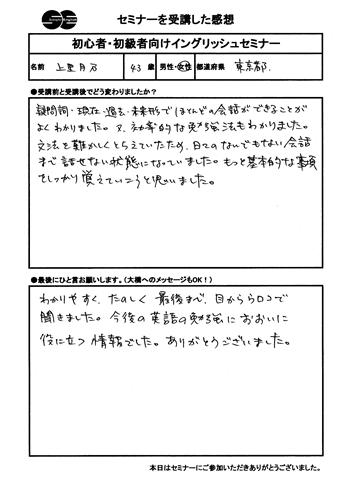 セミナーを受講した感想
初心者・初級者向けイングリッシュセミナー
名前 上里 43 歳 男性・女性 都道府県 東京都
●受講前と受講後でどう変わりましたか?
疑問詞・現在・過去・未来形でほとんどの会話ができることが
よくわかりました。又、効率的な勉強法もわかりました。
文法を難かしくとらえていたため、日々のなんでもない会話
まで話せない状態になっていました。もっと基本的な事項
をしっかり覚えていこうと思いました。
●最後にひと言お願いします。(大橋へのメッセージもOK!)
わかりやすく、たのしく 最後まで、目からウロコで
聞きました。今後の英語の勉強におおいに
役に立つ情報でした。ありがとうございました。
本日はセミナーにご参加いただきありがとうございました。